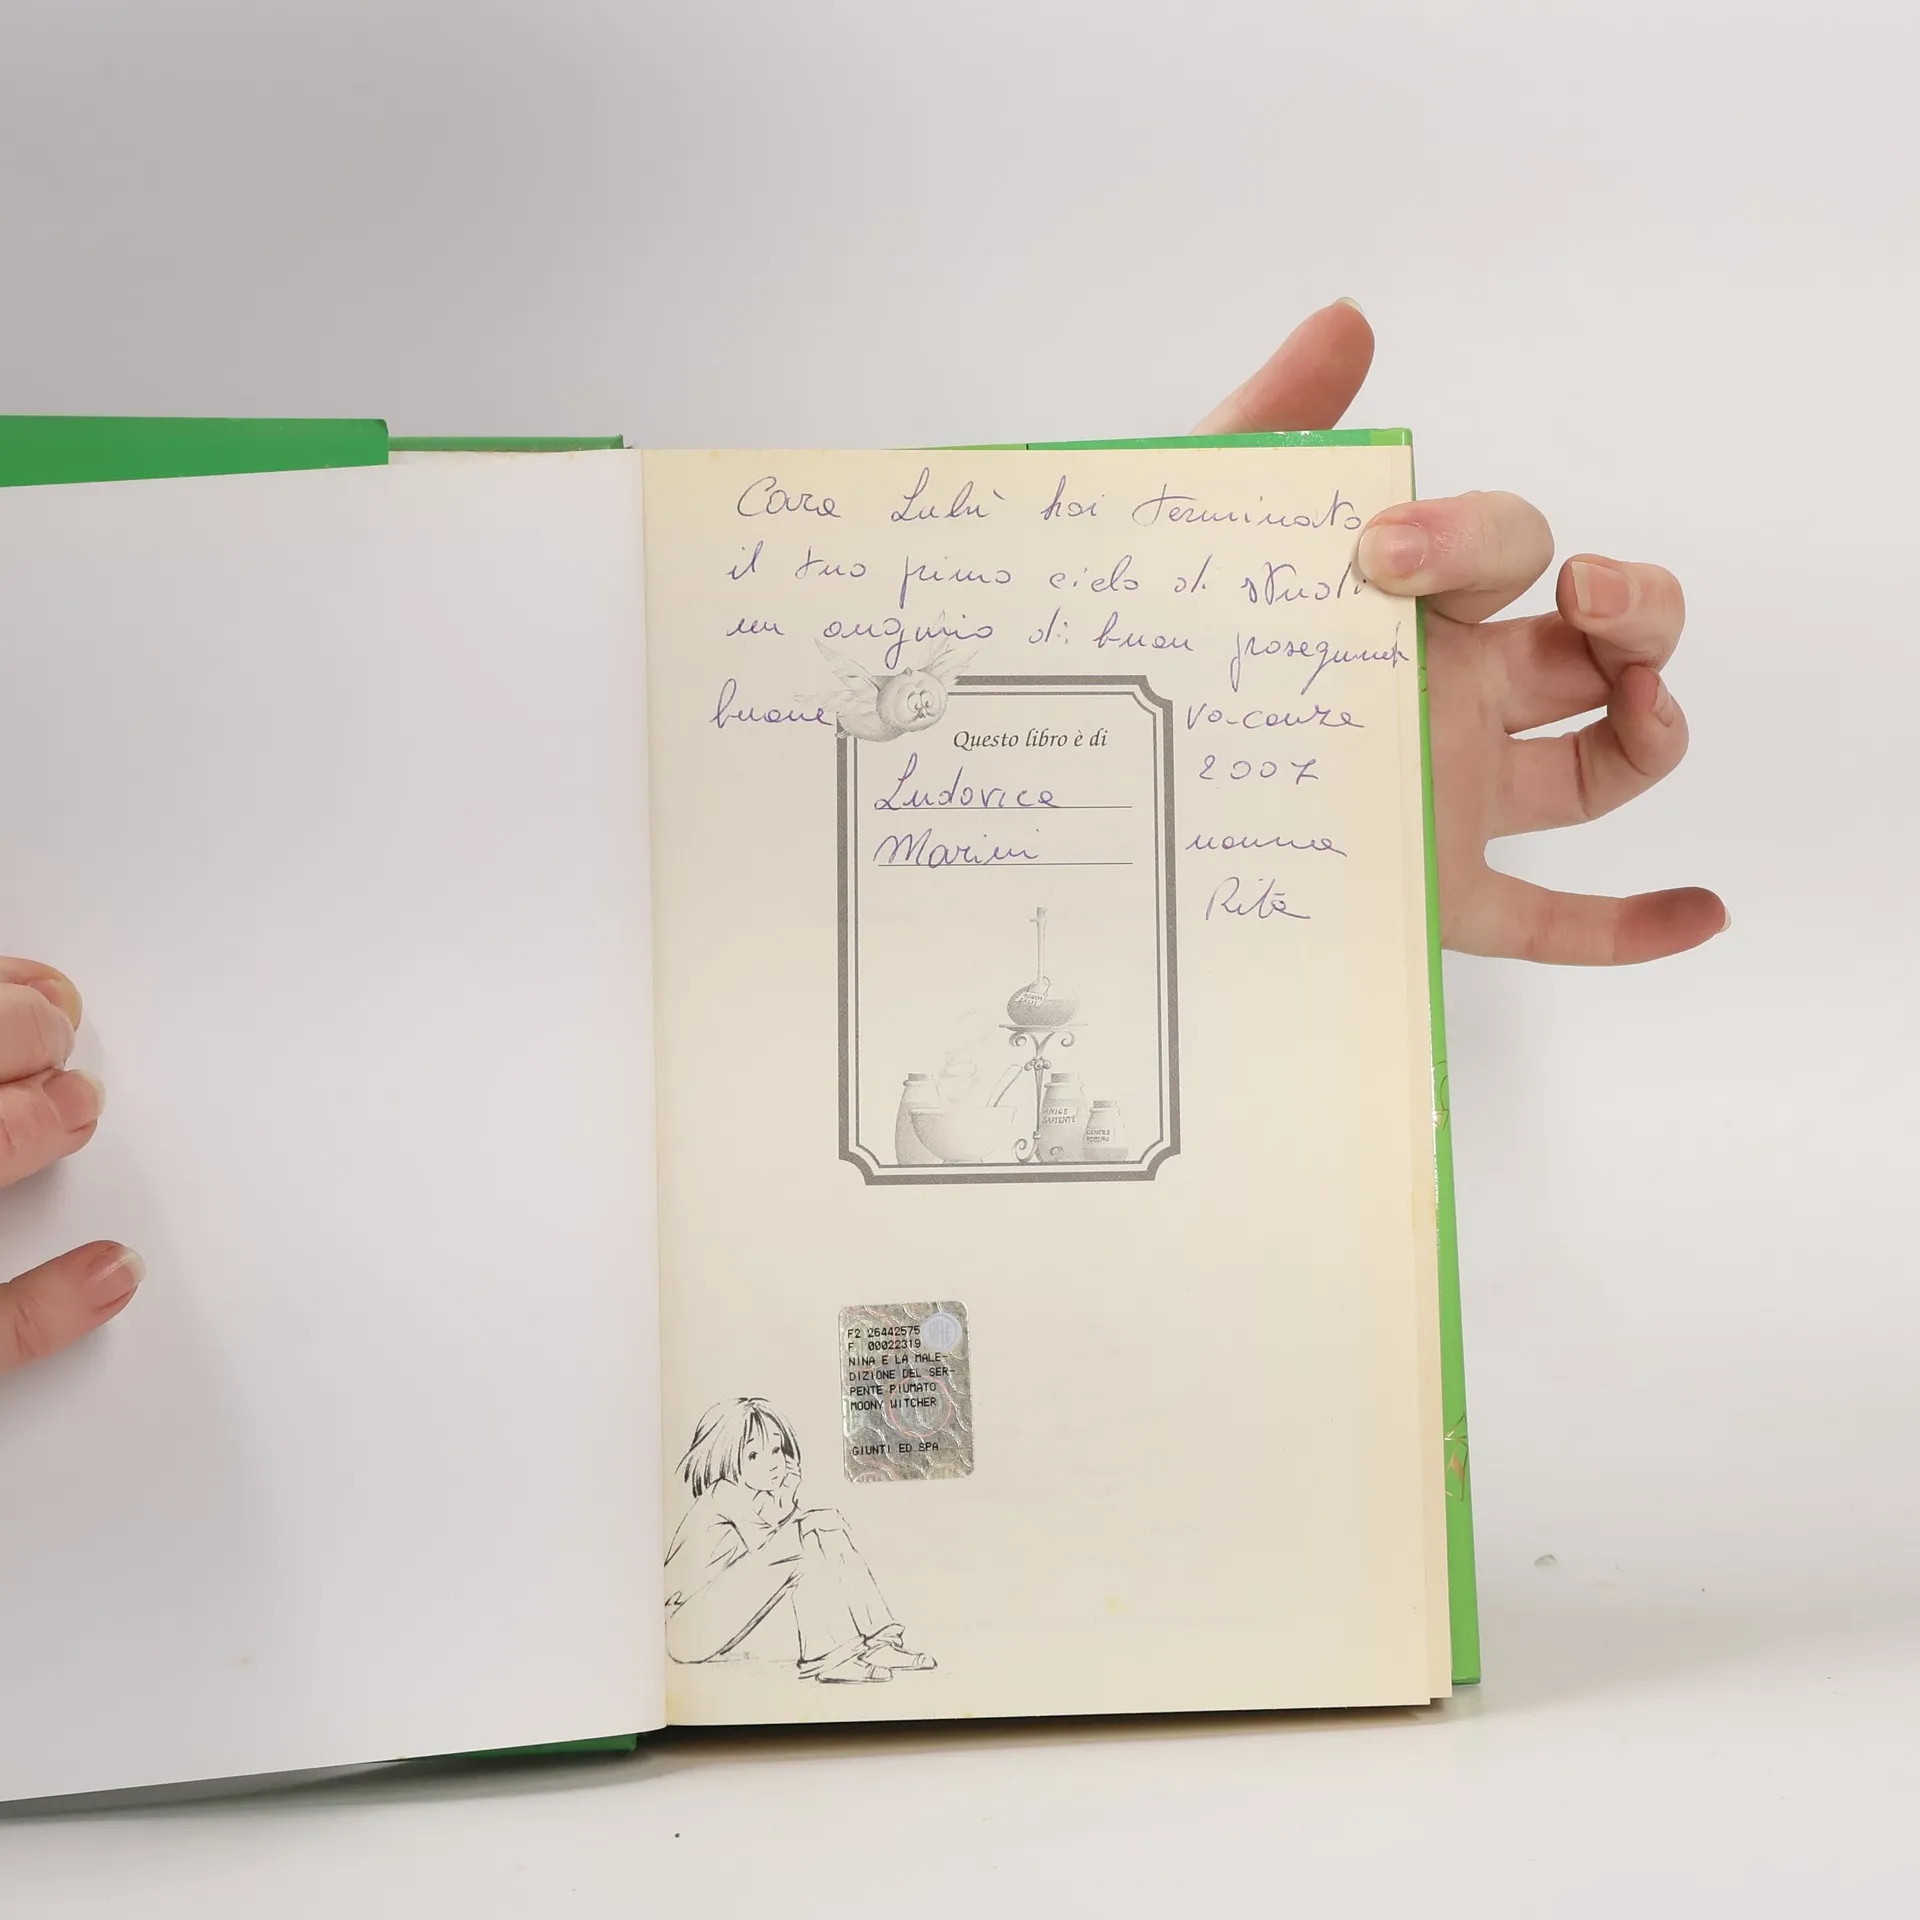 Cara Lulù hai terminato
il tuo primo ciclo di studi
un augurio di buon proseguimet
buone vacanze
2007
nonna
Rita
Questo libro è di
Ludovica
Marini
ANICE
SAPIENTE
F2 26442575
F 00022319
NINA E LA MALE-
DIZIONE DEL SER-
PENTE PIUMATO
MOONY WITCHER
GIUNTI ED.SPA